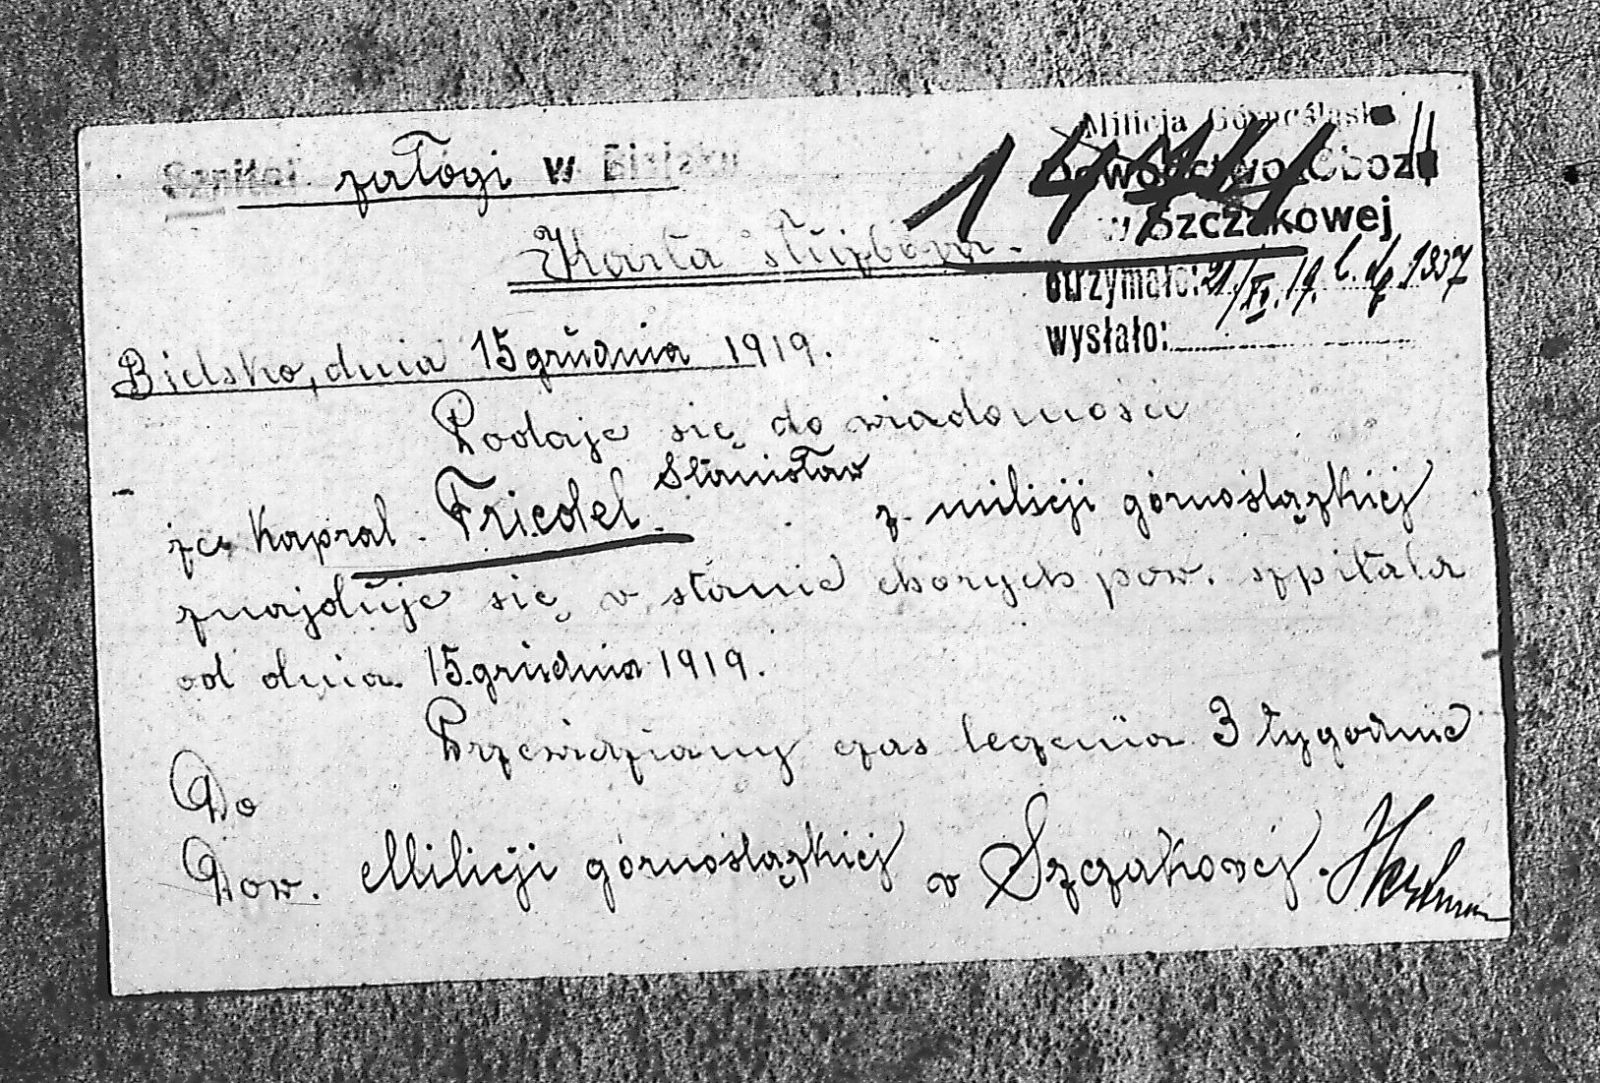 Szpital załogi w Bielsku
Milicja Górnośląska
Dowództwo Obozu
w Szczakowej
otrzymało: 21/XII.19. l. dz. 1937
wysłało:
Karta służbowa.
Bielsko, dnia 15 grudnia 1919.
Podaje się do wiadomości
że kapral Friedel Stanisław z milicji górnośląskiej
znajduje się w stanie chorych pow. szpitala
od dnia 15. grudnia 1919.
Przewidziany czas leczenia 3 tygodnie
Do
Dow. Milicji górnośląskiej w Szczakowej.